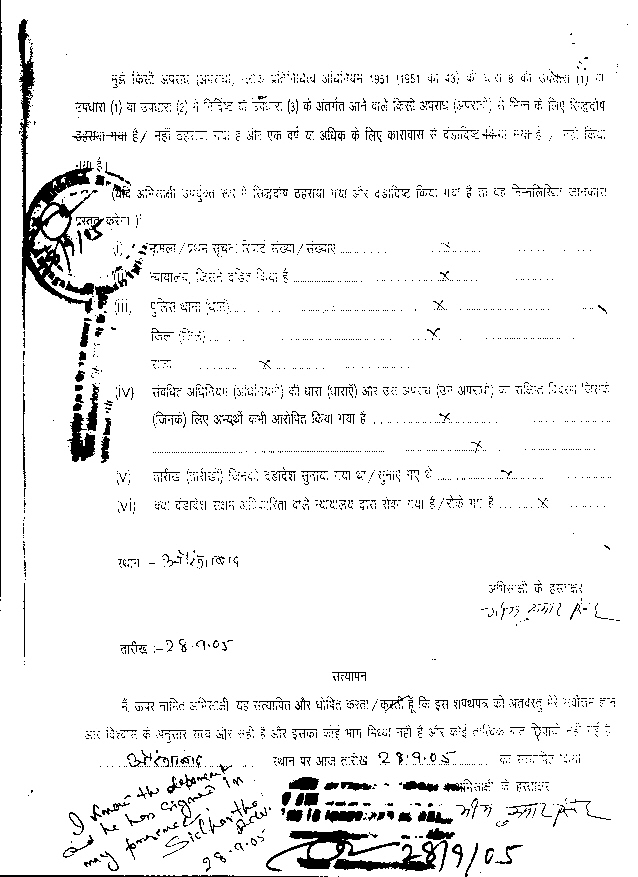 मुझे किसी अपराध (अपराधों), लोक प्रतिनिधित्व अधिनियम 1951 (1951 का 43) की धारा 8 की उपधारा (1) या
उपधारा (1) या उपधारा (2) में निर्दिष्ट या उपधारा (3) के अंतर्गत आने वाले किसी अपराध (अपराधों) से भिन्न के लिए सिद्धदोष
ठहराया गया है / नहीं ठहराया गया है और एक वर्ष या अधिक के लिए कारावास से दंडादिष्ट किया गया है / नहीं किया
गया है।
(यदि अभिसाक्षी उपर्युक्त रूप में सिद्धदोष ठहराया गया और दंडादिष्ट किया गया है तो वह निम्नलिखित जानकारी
प्रस्तुत करेगा)
(i) मामला / प्रथम सूचना रिपोर्ट संख्या / संख्याएं ........ x ........
(ii) न्यायालय, जिसने दंडित किया है ........ x ........
(iii) पुलिस थाना (थाने) ........ x ........
जिला (जिले) ........ x ........
राज्य ........ x ........
(iv) संबंधित अधिनियम (अधिनियमों) की धारा (धाराएँ) और उस अपराध (उन अपराधों) का संक्षिप्त विवरण जिसके
(जिनके) लिए अभ्यर्थी कभी आरोपित किया गया है ........ x ........
........ x ........
(v) तारीख (तारीखें) जिनको दंडादेश सुनाया गया था / सुनाए गए थे ........ x ........
(vi) क्या दंडादेश सक्षम अधिकारिता वाले न्यायालय द्वारा रोका गया है / रोके गए हैं ........ x ........
स्थान :- औरंगाबाद
अभिसाक्षी के हस्ताक्षर
तारीख :- 28.9.05
सत्यापन
मैं, ऊपर नामित अभिसाक्षी यह सत्यापित और घोषित करता / करती हूँ कि इस शपथपत्र की अंतर्वस्तु मेरे सर्वोत्तम ज्ञान
और विश्वास के अनुसार सत्य और सही है और इसका कोई भाग मिथ्या नहीं है और कोई तात्विक बात छिपायी नहीं गई है
औरंगाबाद स्थान पर आज तारीख 28.9.05 को सत्यापित किया
अभिसाक्षी के हस्ताक्षर
I know the deponent
and he has signed in
my presence.
Sidhartha
Adv.
28.9.05
28/9/05